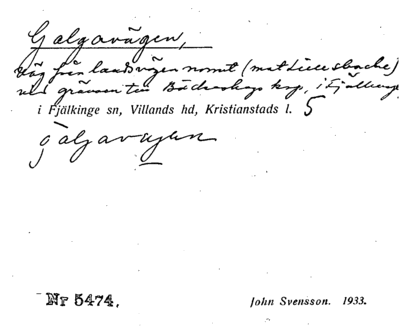 Galgavägen,
Väg från landsvägen norrut (mot Lillesbacke)
vid gränsen till Bäckaskogs kgp, i Fjälkinge
i Fjälkinge sn, Villands hd, Kristianstads l. 5
galgavägen
Nr 5474.
John Svensson. 1933.